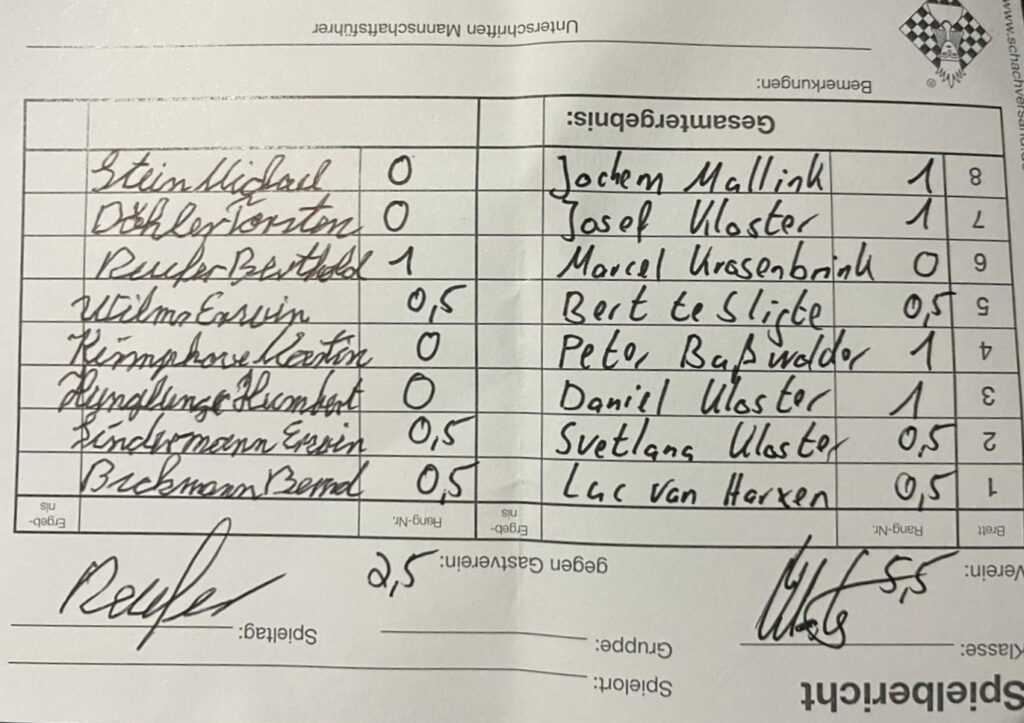 Unterschriften Mannschaftsführer
Bemerkungen:
®
Gesamtergebnis:
Stein Michael 0 Jochem Mallink 1 8
Döhler Torsten 0 Josef Kloster 1 7
Reufer Berthold 1 Marcel Krasenbrink 0 6
Wilms Erwin 0,5 Bert te Sligte 0,5 5
0 Peter Baßwalder 1 4
Humbert 0 Daniel Kloster 1 3
Lindermann Erwin 0,5 Svetlana Kloster 0,5 2
Beckmann Bernd 0,5 Luc van Harxen 0,5 1
Ergeb-nis Rang-Nr. Ergeb-nis Rang-Nr. Brett
2,5 gegen Gastverein: 5,5 Verein:
Reufer Spieltag: Gruppe: Kloster Klasse:
Spielort: Spielbericht